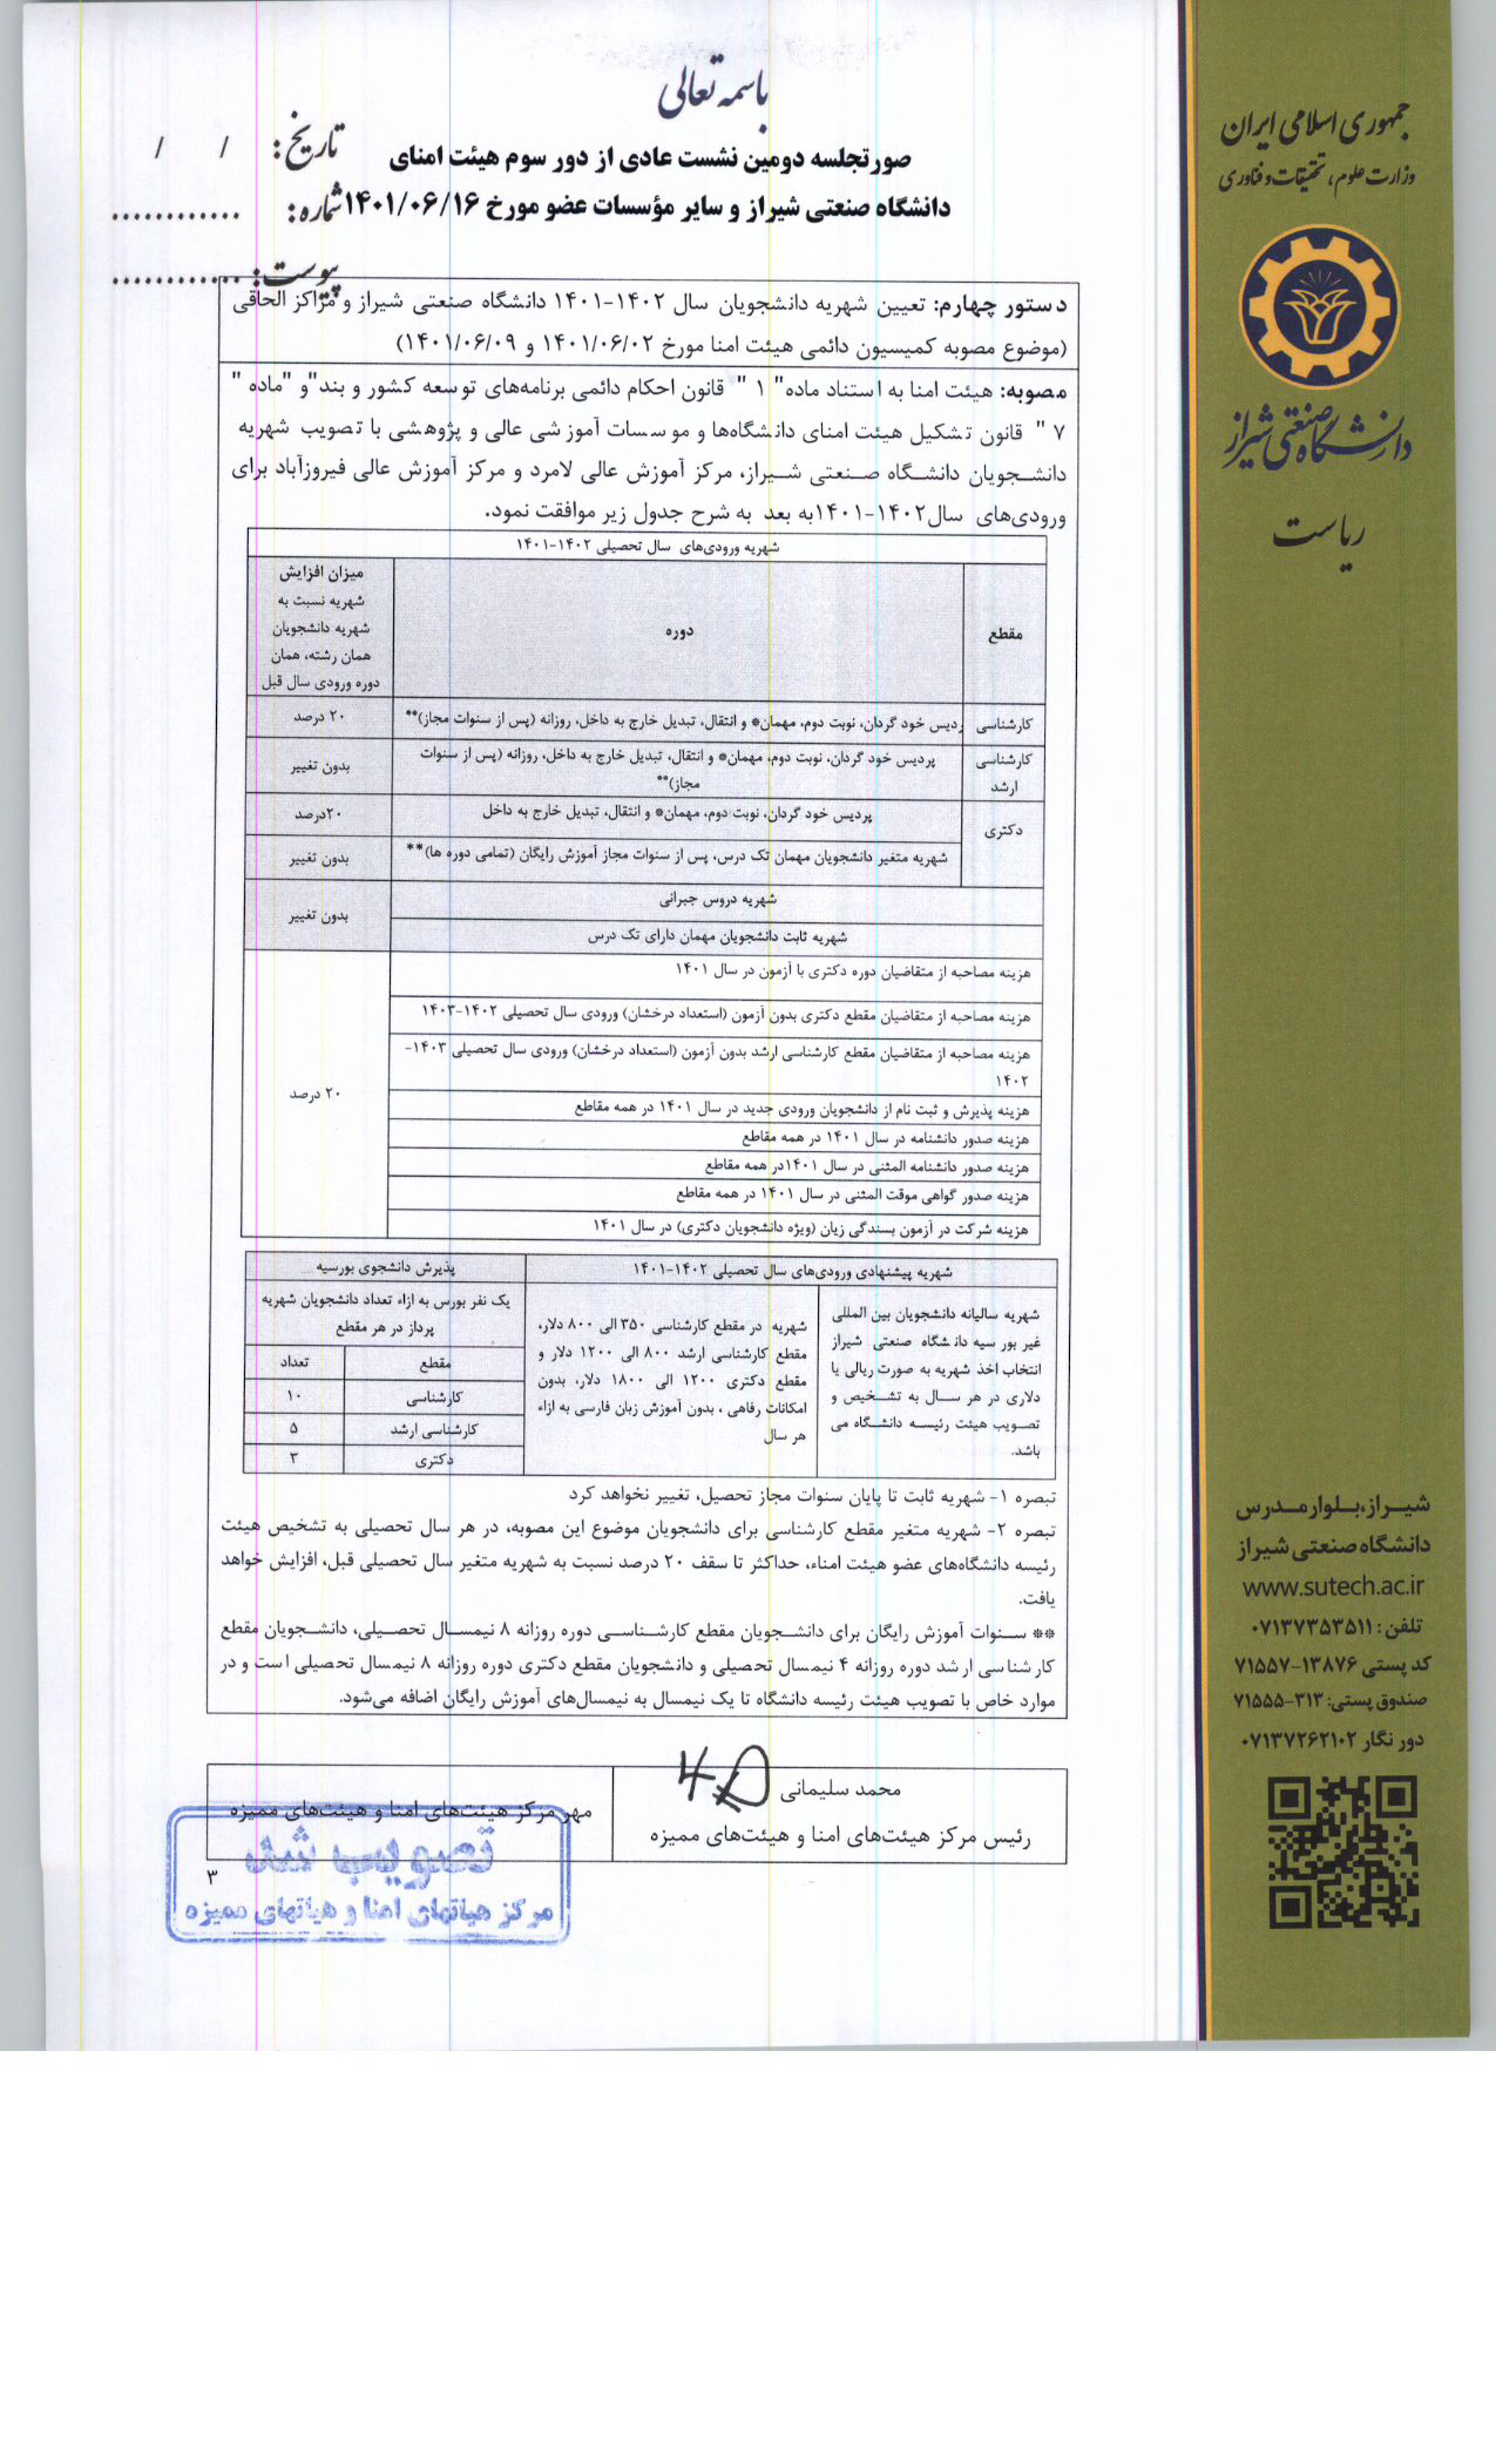 باسمه تعالی
صورتجلسه دومین نشست عادی از دور سوم هیئت امنای
دانشگاه صنعتی شیراز و سایر مؤسسات عضو مورخ ۱۴۰۱/۰۶/۱۶
تاریخ: / /
شماره: ............
پیوست: ............
جمهوری اسلامی ایران
وزارت علوم، تحقیقات و فناوری
دانشگاه صنعتی شیراز
ریاست
دستور چهارم: تعیین شهریه دانشجویان سال ۱۴۰۲-۱۴۰۱ دانشگاه صنعتی شیراز و مراکز الحاقی
(موضوع مصوبه کمیسیون دائمی هیئت امنا مورخ ۱۴۰۱/۰۶/۰۲ و ۱۴۰۱/۰۶/۰۹)
مصوبه: هیئت امنا به استناد ماده" ۱ " قانون احکام دائمی برنامه‌های توسعه کشور و بند"و "ماده "
۷ " قانون تشکیل هیئت امنای دانشگاه‌ها و موسسات آموزشی عالی و پژوهشی با تصویب شهریه
دانشجویان دانشگاه صنعتی شیراز، مرکز آموزش عالی لامرد و مرکز آموزش عالی فیروزآباد برای
ورودی‌های سال۱۴۰۲-۱۴۰۱به بعد به شرح جدول زیر موافقت نمود.
شهریه ورودی‌های سال تحصیلی ۱۴۰۲-۱۴۰۱
مقطع
دوره
میزان افزایش
شهریه نسبت به
شهریه دانشجویان
همان رشته، همان
دوره ورودی سال قبل
کارشناسی
ردیس خود گردان، نوبت دوم، مهمان* و انتقال، تبدیل خارج به داخل، روزانه (پس از سنوات مجاز)**
۲۰ درصد
کارشناسی
ارشد
پردیس خود گردان، نوبت دوم، مهمان* و انتقال، تبدیل خارج به داخل، روزانه (پس از سنوات
مجاز)**
بدون تغییر
دکتری
پردیس خود گردان، نوبت دوم، مهمان* و انتقال، تبدیل خارج به داخل
۲۰درصد
شهریه متغیر دانشجویان مهمان تک درس، پس از سنوات مجاز آموزش رایگان (تمامی دوره ها)**
بدون تغییر
شهریه دروس جبرانی
شهریه ثابت دانشجویان مهمان دارای تک درس
بدون تغییر
هزینه مصاحبه از متقاضیان دوره دکتری با آزمون در سال ۱۴۰۱
هزینه مصاحبه از متقاضیان مقطع دکتری بدون آزمون (استعداد درخشان) ورودی سال تحصیلی ۱۴۰۲-۱۴۰۳
هزینه مصاحبه از متقاضیان مقطع کارشناسی ارشد بدون آزمون (استعداد درخشان) ورودی سال تحصیلی ۱۴۰۳-
۱۴۰۲
هزینه پذیرش و ثبت نام از دانشجویان ورودی جدید در سال ۱۴۰۱ در همه مقاطع
هزینه صدور دانشنامه در سال ۱۴۰۱ در همه مقاطع
هزینه صدور دانشنامه المثنی در سال ۱۴۰۱در همه مقاطع
هزینه صدور گواهی موقت المثنی در سال ۱۴۰۱ در همه مقاطع
هزینه شرکت در آزمون بسندگی زبان (ویژه دانشجویان دکتری) در سال ۱۴۰۱
۲۰ درصد
شهریه پیشنهادی ورودی‌های سال تحصیلی ۱۴۰۲-۱۴۰۱
پذیرش دانشجوی بورسیه
شهریه سالیانه دانشجویان بین المللی
غیر بورسیه دانشگاه صنعتی شیراز
انتخاب اخذ شهریه به صورت ریالی یا
دلاری در هر سال به تشخیص و
تصویب هیئت رئیسه دانشگاه می
باشد.
شهریه در مقطع کارشناسی ۳۵۰ الی ۸۰۰ دلار،
مقطع کارشناسی ارشد ۸۰۰ الی ۱۲۰۰ دلار و
مقطع دکتری ۱۲۰۰ الی ۱۸۰۰ دلار، بدون
امکانات رفاهی ، بدون آموزش زبان فارسی به ازاء
هر سال
یک نفر بورس به ازاء تعداد دانشجویان شهریه
پرداز در هر مقطع
مقطع تعداد
کارشناسی ۱۰
کارشناسی ارشد ۵
دکتری ۳
تبصره ۱- شهریه ثابت تا پایان سنوات مجاز تحصیل، تغییر نخواهد کرد
تبصره ۲- شهریه متغیر مقطع کارشناسی برای دانشجویان موضوع این مصوبه، در هر سال تحصیلی به تشخیص هیئت
رئیسه دانشگاه‌های عضو هیئت امناء، حداکثر تا سقف ۲۰ درصد نسبت به شهریه متغیر سال تحصیلی قبل، افزایش خواهد
یافت.
** سنوات آموزش رایگان برای دانشجویان مقطع کارشناسی دوره روزانه ۸ نیمسال تحصیلی، دانشجویان مقطع
کارشناسی ارشد دوره روزانه ۴ نیمسال تحصیلی و دانشجویان مقطع دکتری دوره روزانه ۸ نیمسال تحصیلی است و در
موارد خاص با تصویب هیئت رئیسه دانشگاه تا یک نیمسال به نیمسال‌های آموزش رایگان اضافه می‌شود.
محمد سلیمانی
رئیس مرکز هیئت‌های امنا و هیئت‌های ممیزه
مهر مرکز هیئت‌های امنا و هیئت‌های ممیزه
تصویب شد
مرکز هیاتهای امنا و هیاتهای ممیزه
۳
شیراز،بلوار مدرس
دانشگاه صنعتی شیراز
www.sutech.ac.ir
تلفن: ۰۷۱۳۷۳۵۳۵۱۱
کد پستی ۱۳۸۷۶-۷۱۵۵۷
صندوق پستی: ۳۱۳-۷۱۵۵۵
دور نگار ۰۷۱۳۷۲۶۲۱۰۲